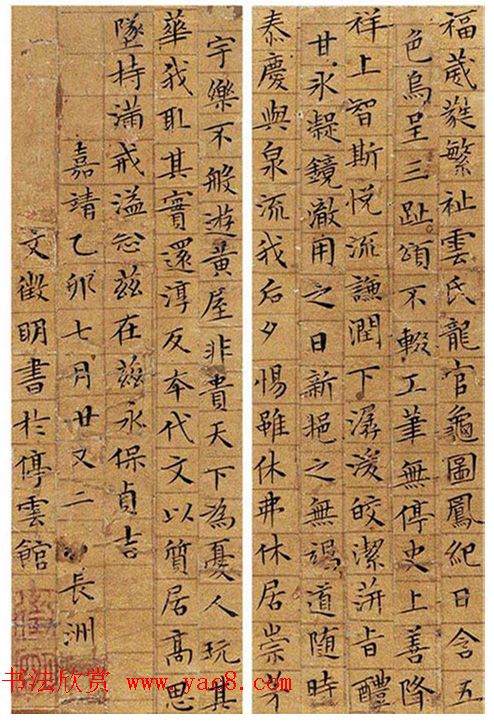 福葳蕤繁祉雲氏龍官龜圖鳳紀日含五
色烏呈三趾頌不輟工筆無停史上善降
祥上智斯悅流謙潤下潺湲皎潔蓱旨醴
甘氷凝鏡澈用之日新挹之無竭道随時
泰慶與泉流我后夕惕雖休弗休居崇茅
宇樂不般遊黃屋非貴天下為憂人玩其
華我取其實還淳反本代文以質居高思
墜持滿戒溢念茲在茲永保貞吉
嘉靖乙卯七月廿又二長洲
文徵明書於停雲館
书法欣赏 www.yac8.com